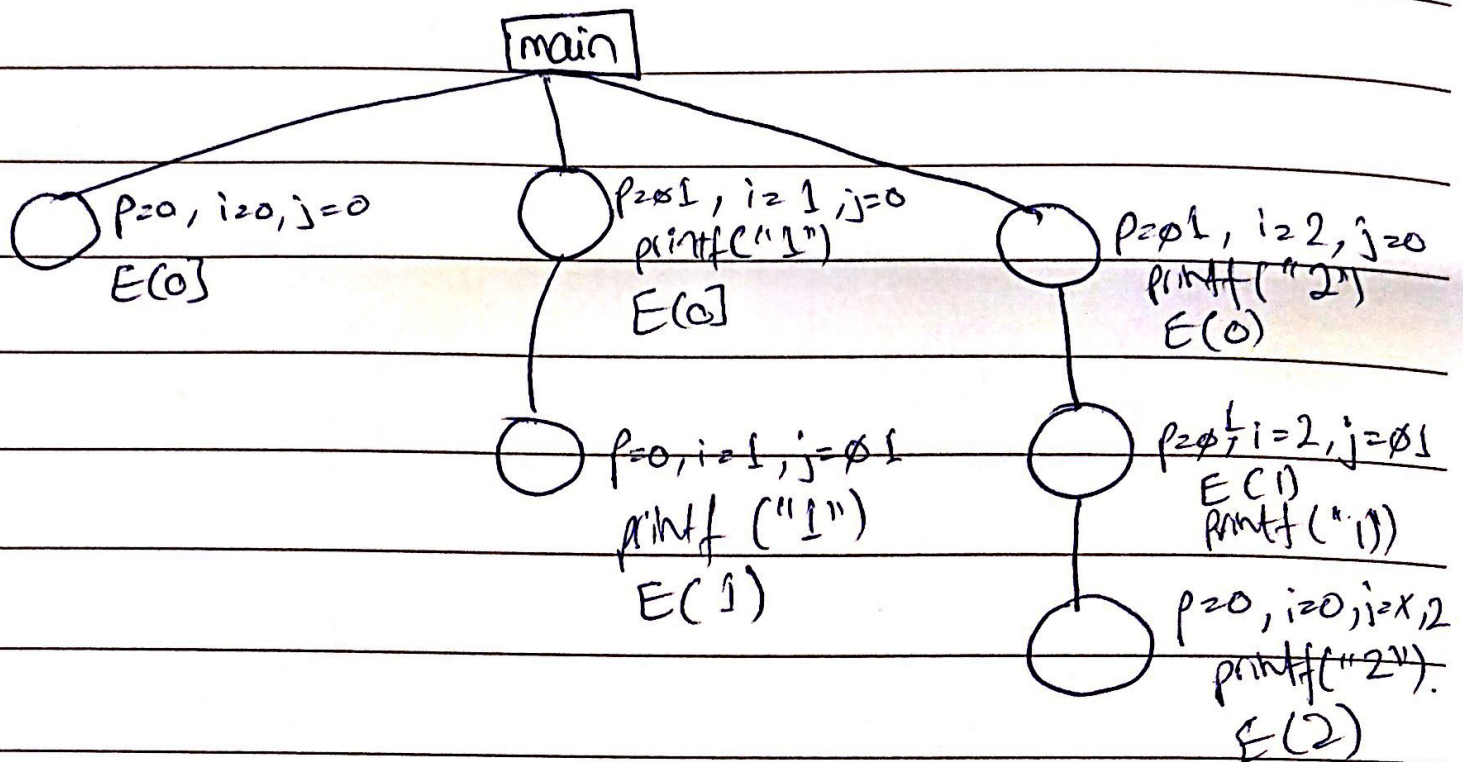 main
p=0, i=0, j=0
E(0]
p=0̸1, i=1, j=0
printf("1")
E(0]
p=0̸1, i=2, j=0
printf("2")
E(0)
p=0, i=1, j=0̸1
printf("1")
E(1)
p=0̸1, i=2, j=0̸1
E(1)
printf("1")
p=0, i=0, j=x,2
printf("2").
E(2)